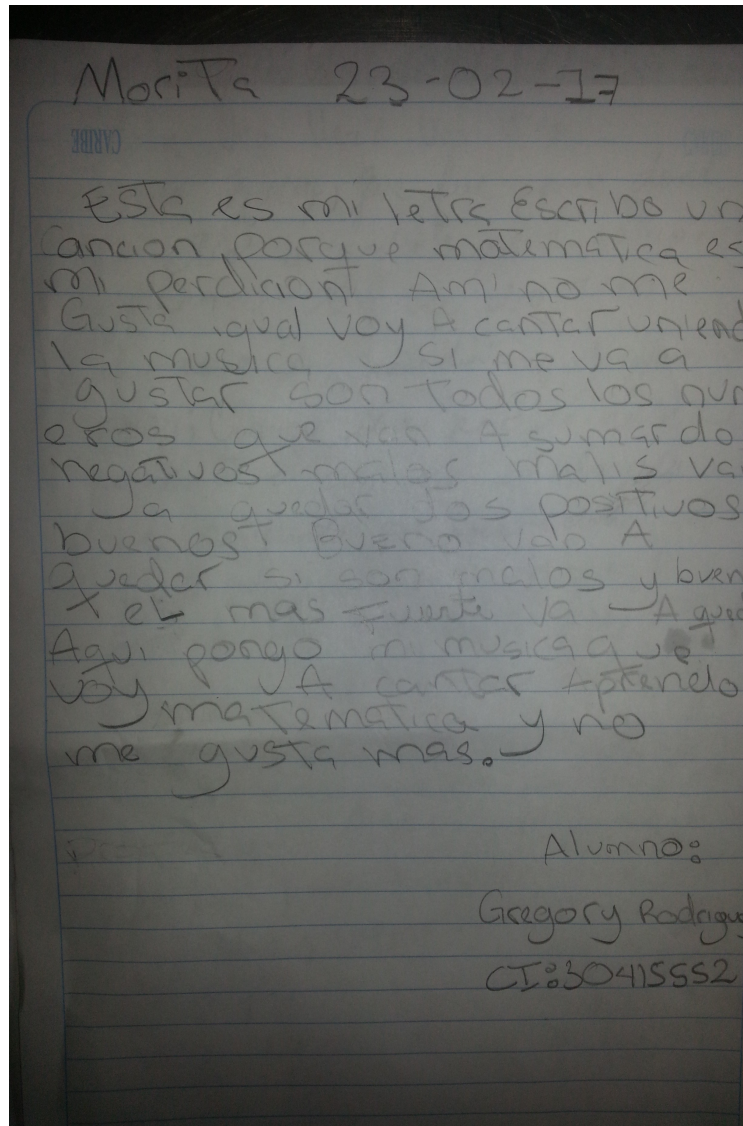 MoriTa 23-02-17
CARIBE
Esta es mi letra Escribo un
cancion, porque matemática es
mi perdicion! Ami no me
Gusta igual voy A cantar uniend
la musica y si me va a
gustar son todos los num
eros que van A sumar do
negativos malos malis va
a quedar los positivos
buenos! Bueno van A
quedar si son malos y buen
el mas fuerte va A qued
Aqui pongo mi musica que
voy A cantar Aprendo
matematica y no
me gusta mas.
Alumno:
Gregory Rodrigu
CI:30415552